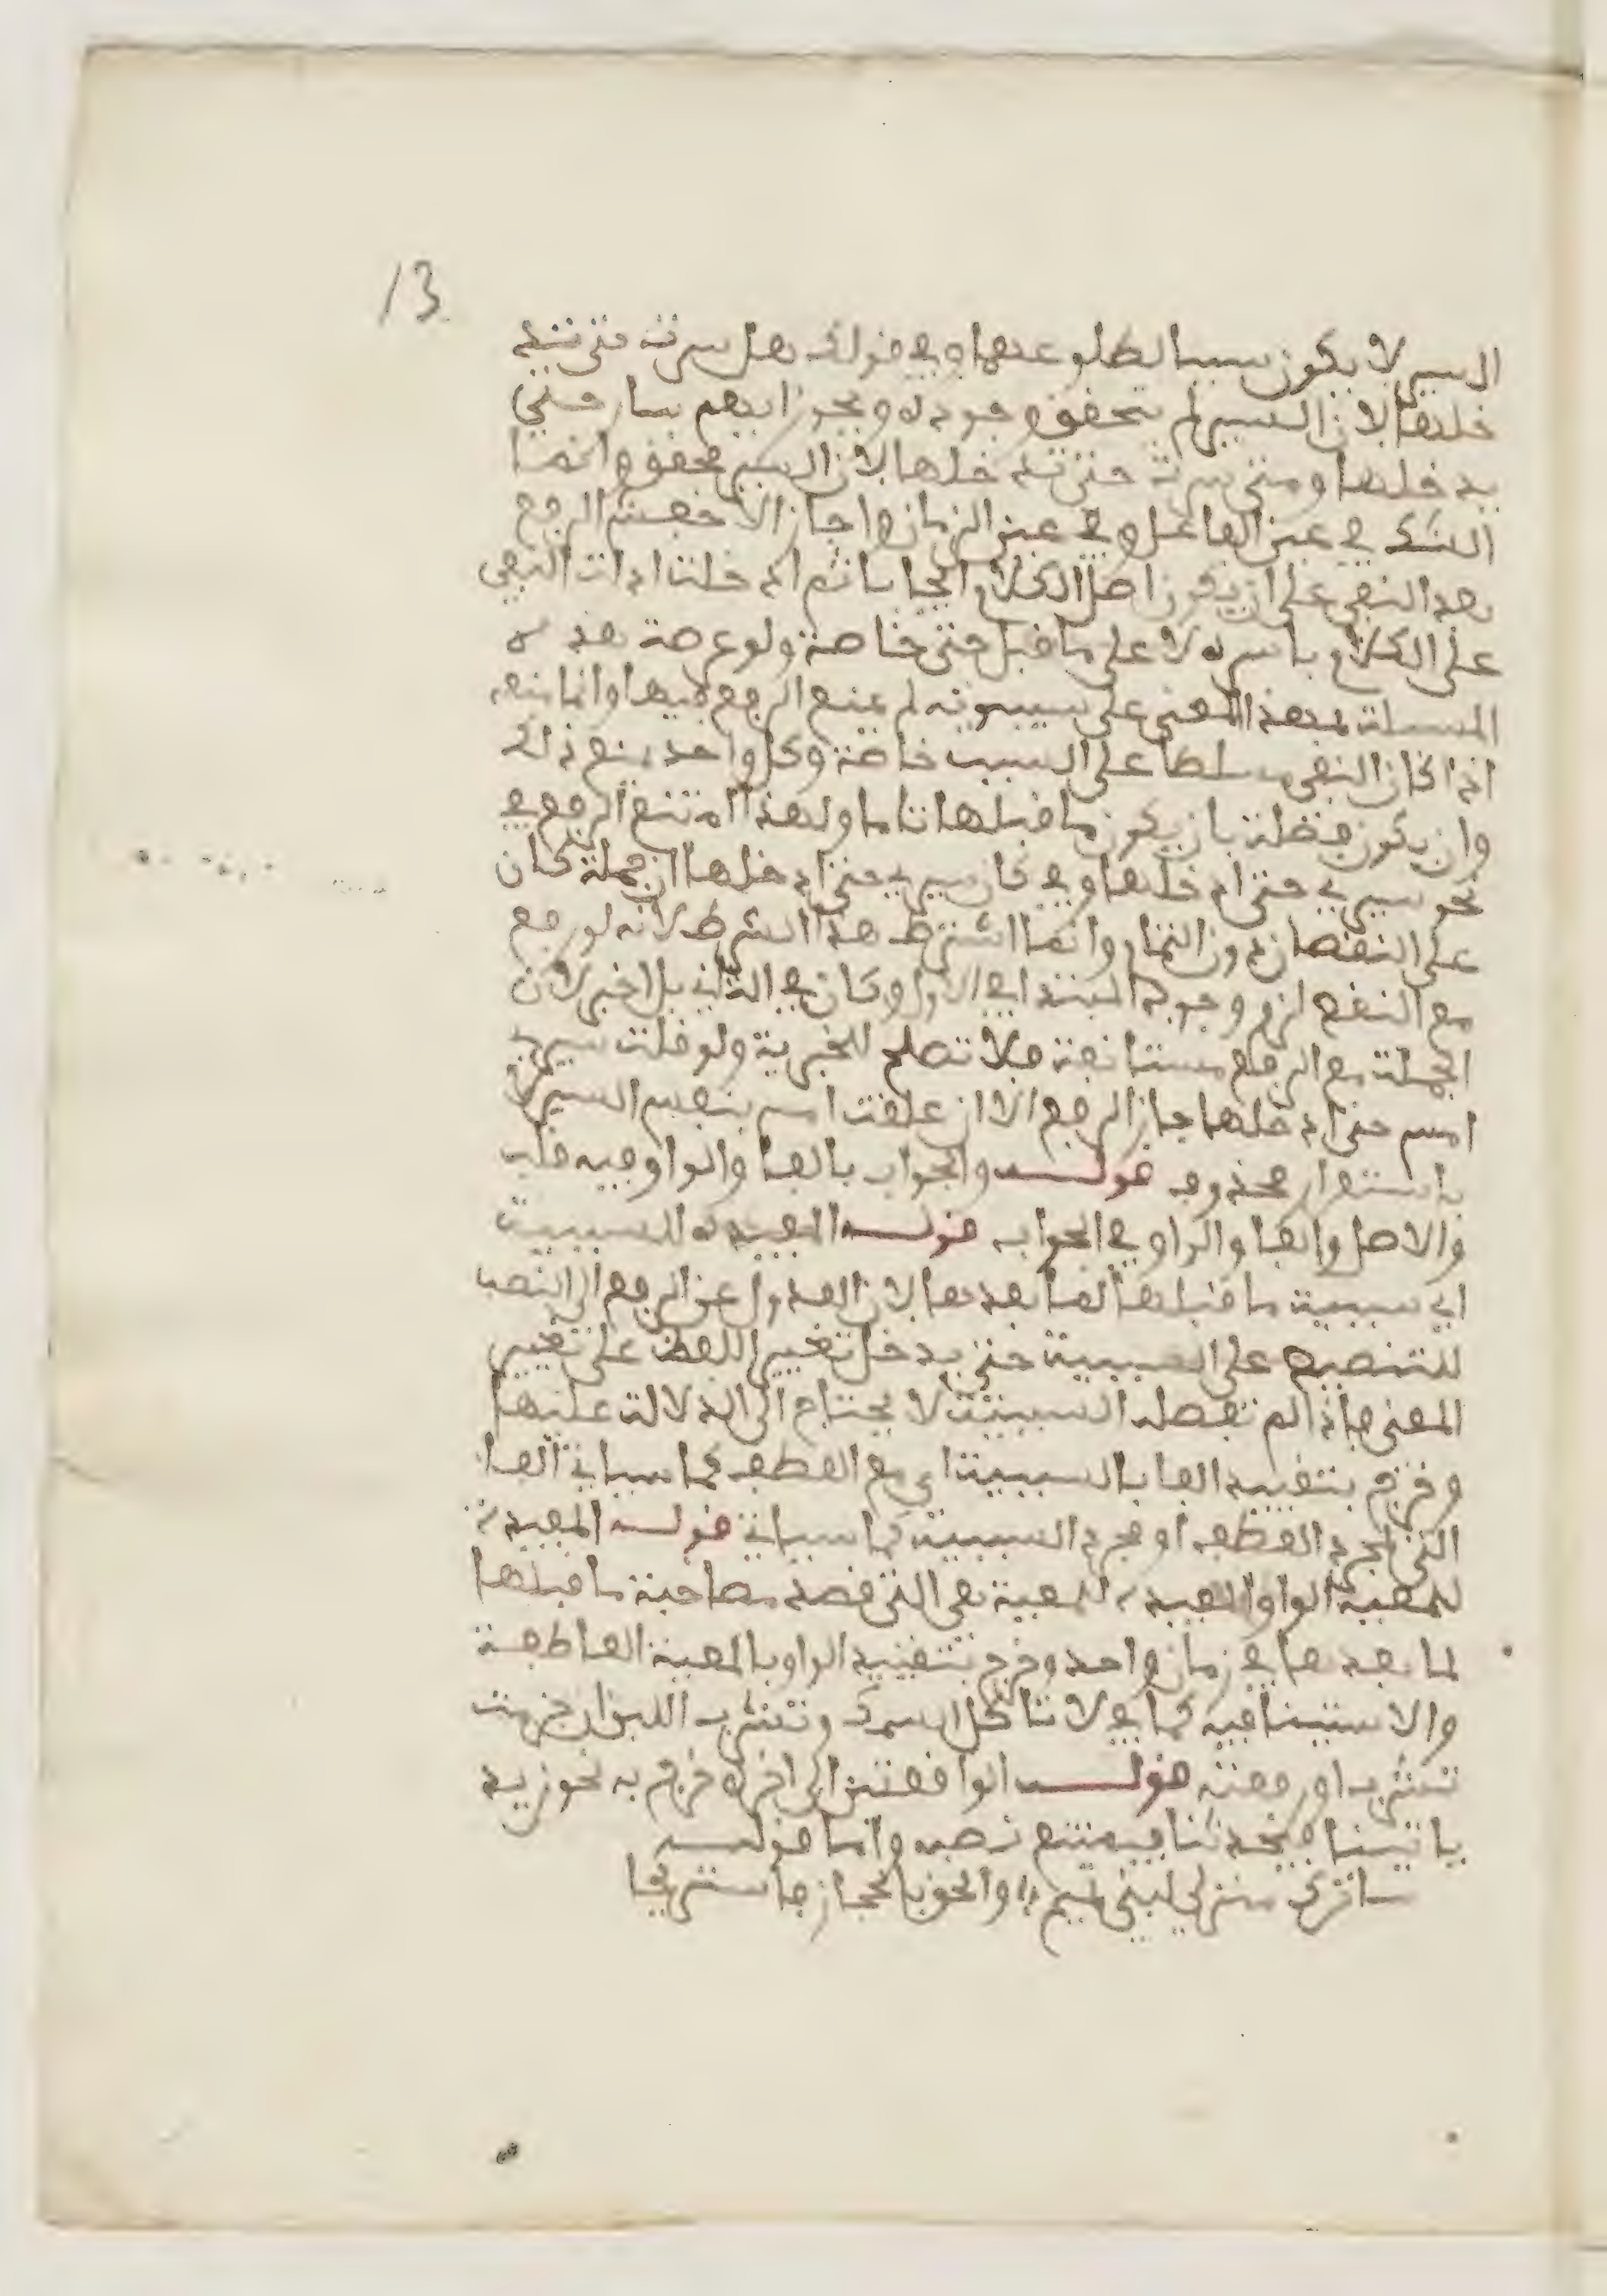 13
السير لا يكون سببا لطلوعها وفي قولك هل سرت حتى تد
خلها لان السير لم يتحقق وجوده ويجوز ايهم سار حتى
يدخلها ومتى سرت حتى تدخلها لان السير محقق وانما
الشك في عين الفاعل وفي عين الزمان واجاز الاخفش الرفع
بعد النفي على ان يكون اصل الكلام ايجابا ثم ادخلت اداة النفي
على الكلام باسره لا على ما قبل حتى خاصة ولو عرضت هذه
المسئلة بهذا المعنى على سيبويه لم يمنع الرفع فيها وانما منعه
اذا كان النفي مسلطا على السبب خاصة وكل واحد يمنع ذلك
وان يكون فضلة بان يكون ما قبلها تاما ولهذا امتنع الرفع في
نحو سيري حتى ادخلها وفي كان سيري حتى ادخلها ان حملت كان
على النقصان دون التمام وانما اشترط هذا الشرط لانه لو رفع
مع النقص لزم وجود المبتدا في الاول وكان في الثاني بلا خبر لان
الجملة مع الرفع مستانفة فلا تصلح للخبرية ولو قلت سيري
امس حتى ادخلها جاز الرفع الا ان علقت امس بنفس السير لا
باستقرار محذوف قوله والجواب بالفا والواو فيه قلب
والاصل والفا والواو في الجواب قوله المفيدة للسببية
اي سببية ما قبلها لما بعدها لان العدول عن الرفع الى النصب
للتنصيص على السببية حتى يدخل تغيير اللفظ على تغيير
المعنى فاذا لم تقصد السببية لا يحتاج الى الدلالة عليها
وخرج بتقييد الفا بالسببية اي مع العطف كما سياتي الفا
التي لمجرد العطف او مجرد السببية كما سياتي قوله المفيدة
للمعية الواو المفيدة للمعية هي التي قصد مصاحبة ما قبلها
لما بعدها في زمان واحد وخرج بتقييد الواو بالمعية العاطفة
والاستينافية كما في لا تاكل السمك وتشرب اللبن ان جزمت
تشرب او رفعته قوله الواقعتين الى اخره خرج به نحو زيد
ياتينا فيحدثنا فيمتنع نصبه واما قوله
ساترك منزلي لبني تميم والحق بالحجاز فاستريحا